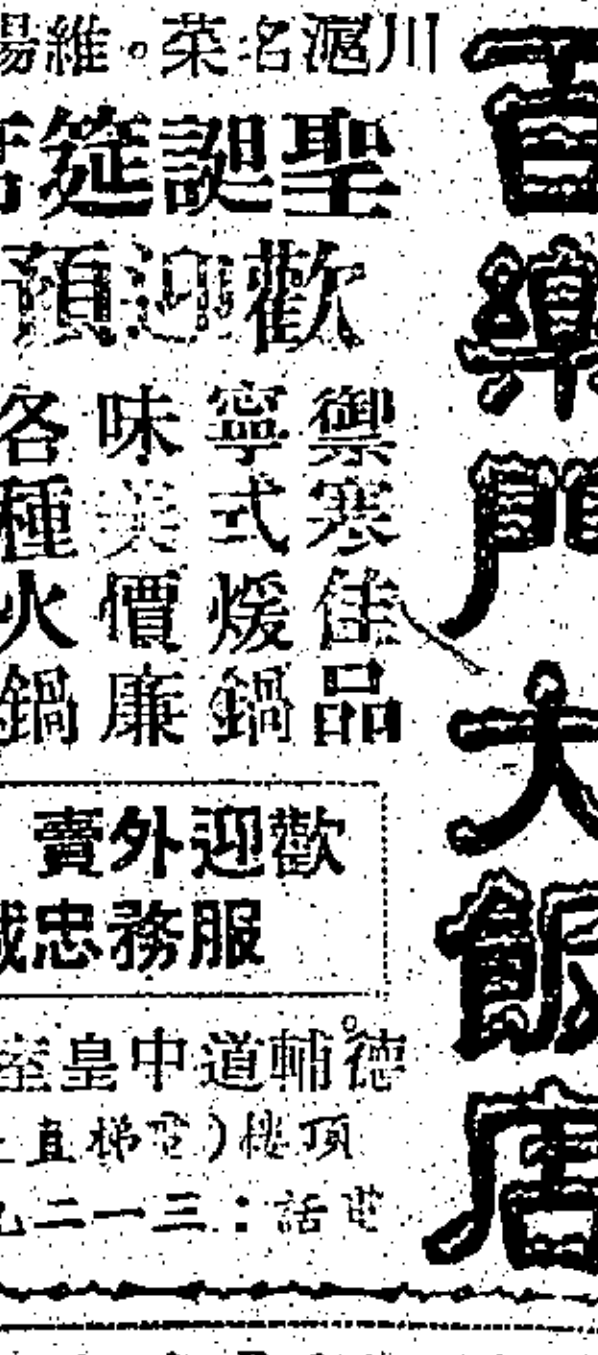 百樂門大飯店
川滬名菜。維揚
聖誕筵席
歡迎預
禦寒佳品
寧式煖鍋
味美價廉
各種火鍋
歡迎外賣
服務忠誠
德輔道中皇室
頂樓(電梯直上
電話：三一二九